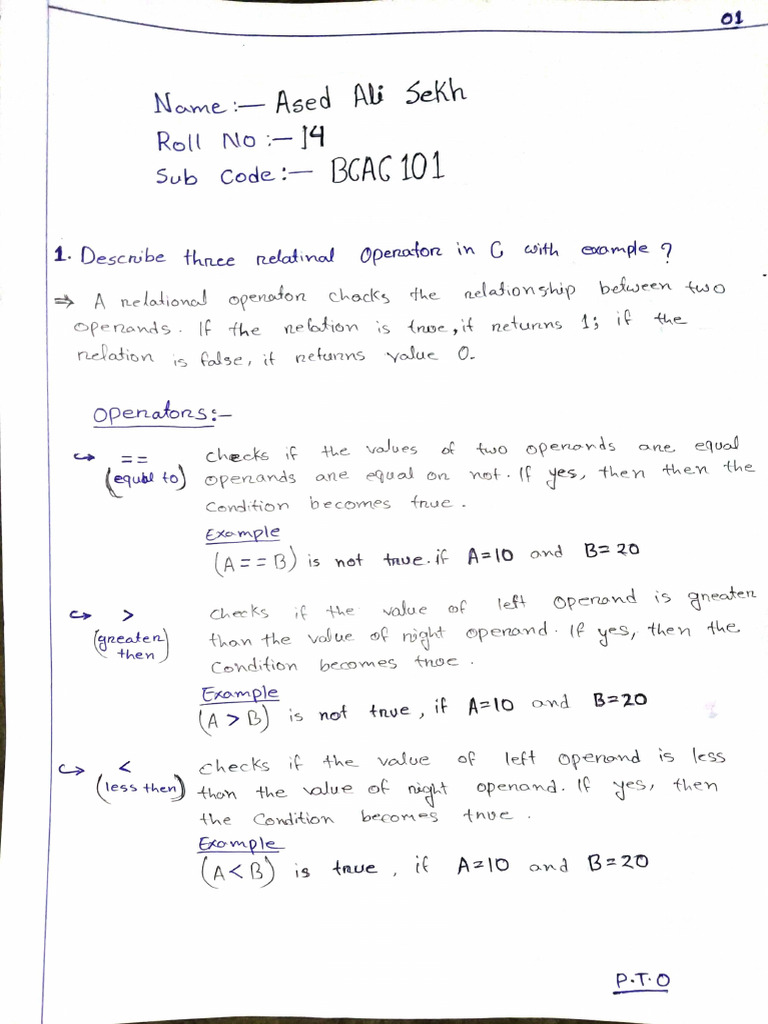 01
Name :— Ased Ali Sekh
Roll No :— 14
Sub Code :— BCAC 101
1. Describe three relatinal Operator in C with example ?
⇒ A relational operator chacks the relationship between two
operands. If the relation is true, it returns 1; if the
relation is false, it returns value 0.
Operators:—
↪ == checks if the values of two operands are equal
(equal to) operands are equal or not. If yes, then then the
Condition becomes true.
Example
(A == B) is not true. if A=10 and B=20
↪ > checks if the value of left operand is greater
(greater then) than the value of right operand. If yes, then the
Condition becomes true.
Example
(A > B) is not true, if A=10 and B=20
↪ < checks if the value of left operand is less
(less then) than the value of right operand. If yes, then
the Condition becomes true.
Example
(A < B) is true, if A=10 and B=20
P.T.O